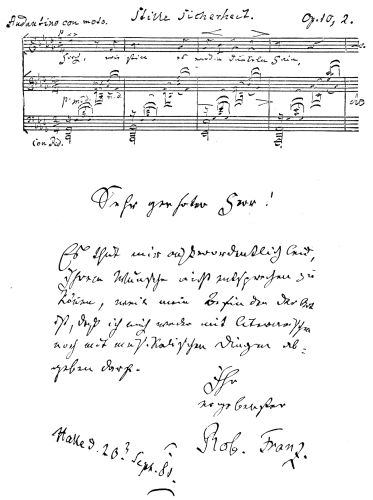 Andantino con moto. Stille Sicherheit. Op. 10, 2.
Horch, wie still es wird im dunkeln Hain,
Con Ped.
Sehr geehrter Herr!
Es thut mir außerordentlich leid,
Ihrem Wunsche nicht entsprechen zu
können, weil mein Befinden der Art
ist, daß ich mich weder mit literarischen
noch mit musikalischen Dingen ab-
geben darf.
Ihr
ergebenster
Rob. Franz.
Halle d. 20 Sept. 81.